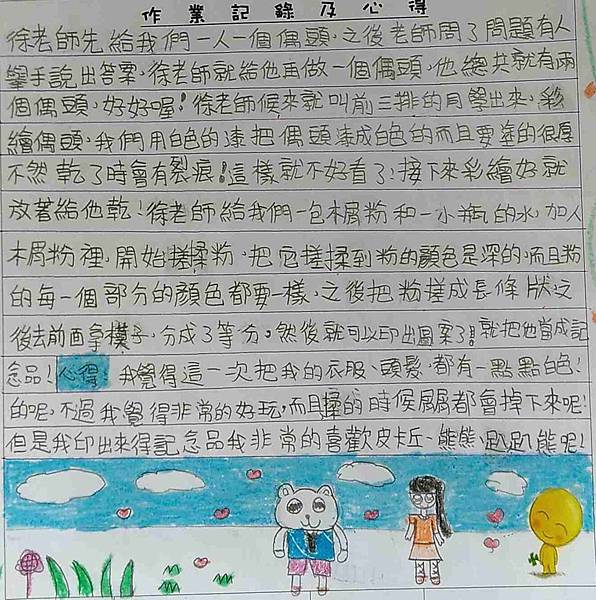 作業記錄及心得
徐老師先給我們一人一個偶頭，之後老師問了問題有人
舉手說出答案，徐老師就給他再做一個偶頭，他總共就有兩
個偶頭，好好喔！徐老師候來就叫前三排的同學出來，彩
繪偶頭，我們用白色的漆把偶頭漆成白色的而且要塗的很厚
不然乾了時會有裂痕！這樣就不好看了，接下來彩繪好就
放著給他乾！徐老師給我們一包木屑粉和一小瓶的水，加入
木屑粉裡，開始搓揉粉，把它搓揉到粉的顏色是深的，而且粉
的每一個部分的顏色都要一樣，之後把粉搓成長條狀，之
後去前面拿模子，分成3等分。然後就可以印出圖案了！就把他當成記
念品！心得 我覺得這一次把我的衣服、頭髮，都有一點點白色！
的呢，不過我覺得非常的好玩，而且揉的時候屑屑都會掉下來呢！
但是我印出來得記念品我非常的喜歡皮卡丘、熊熊、趴趴熊呢！